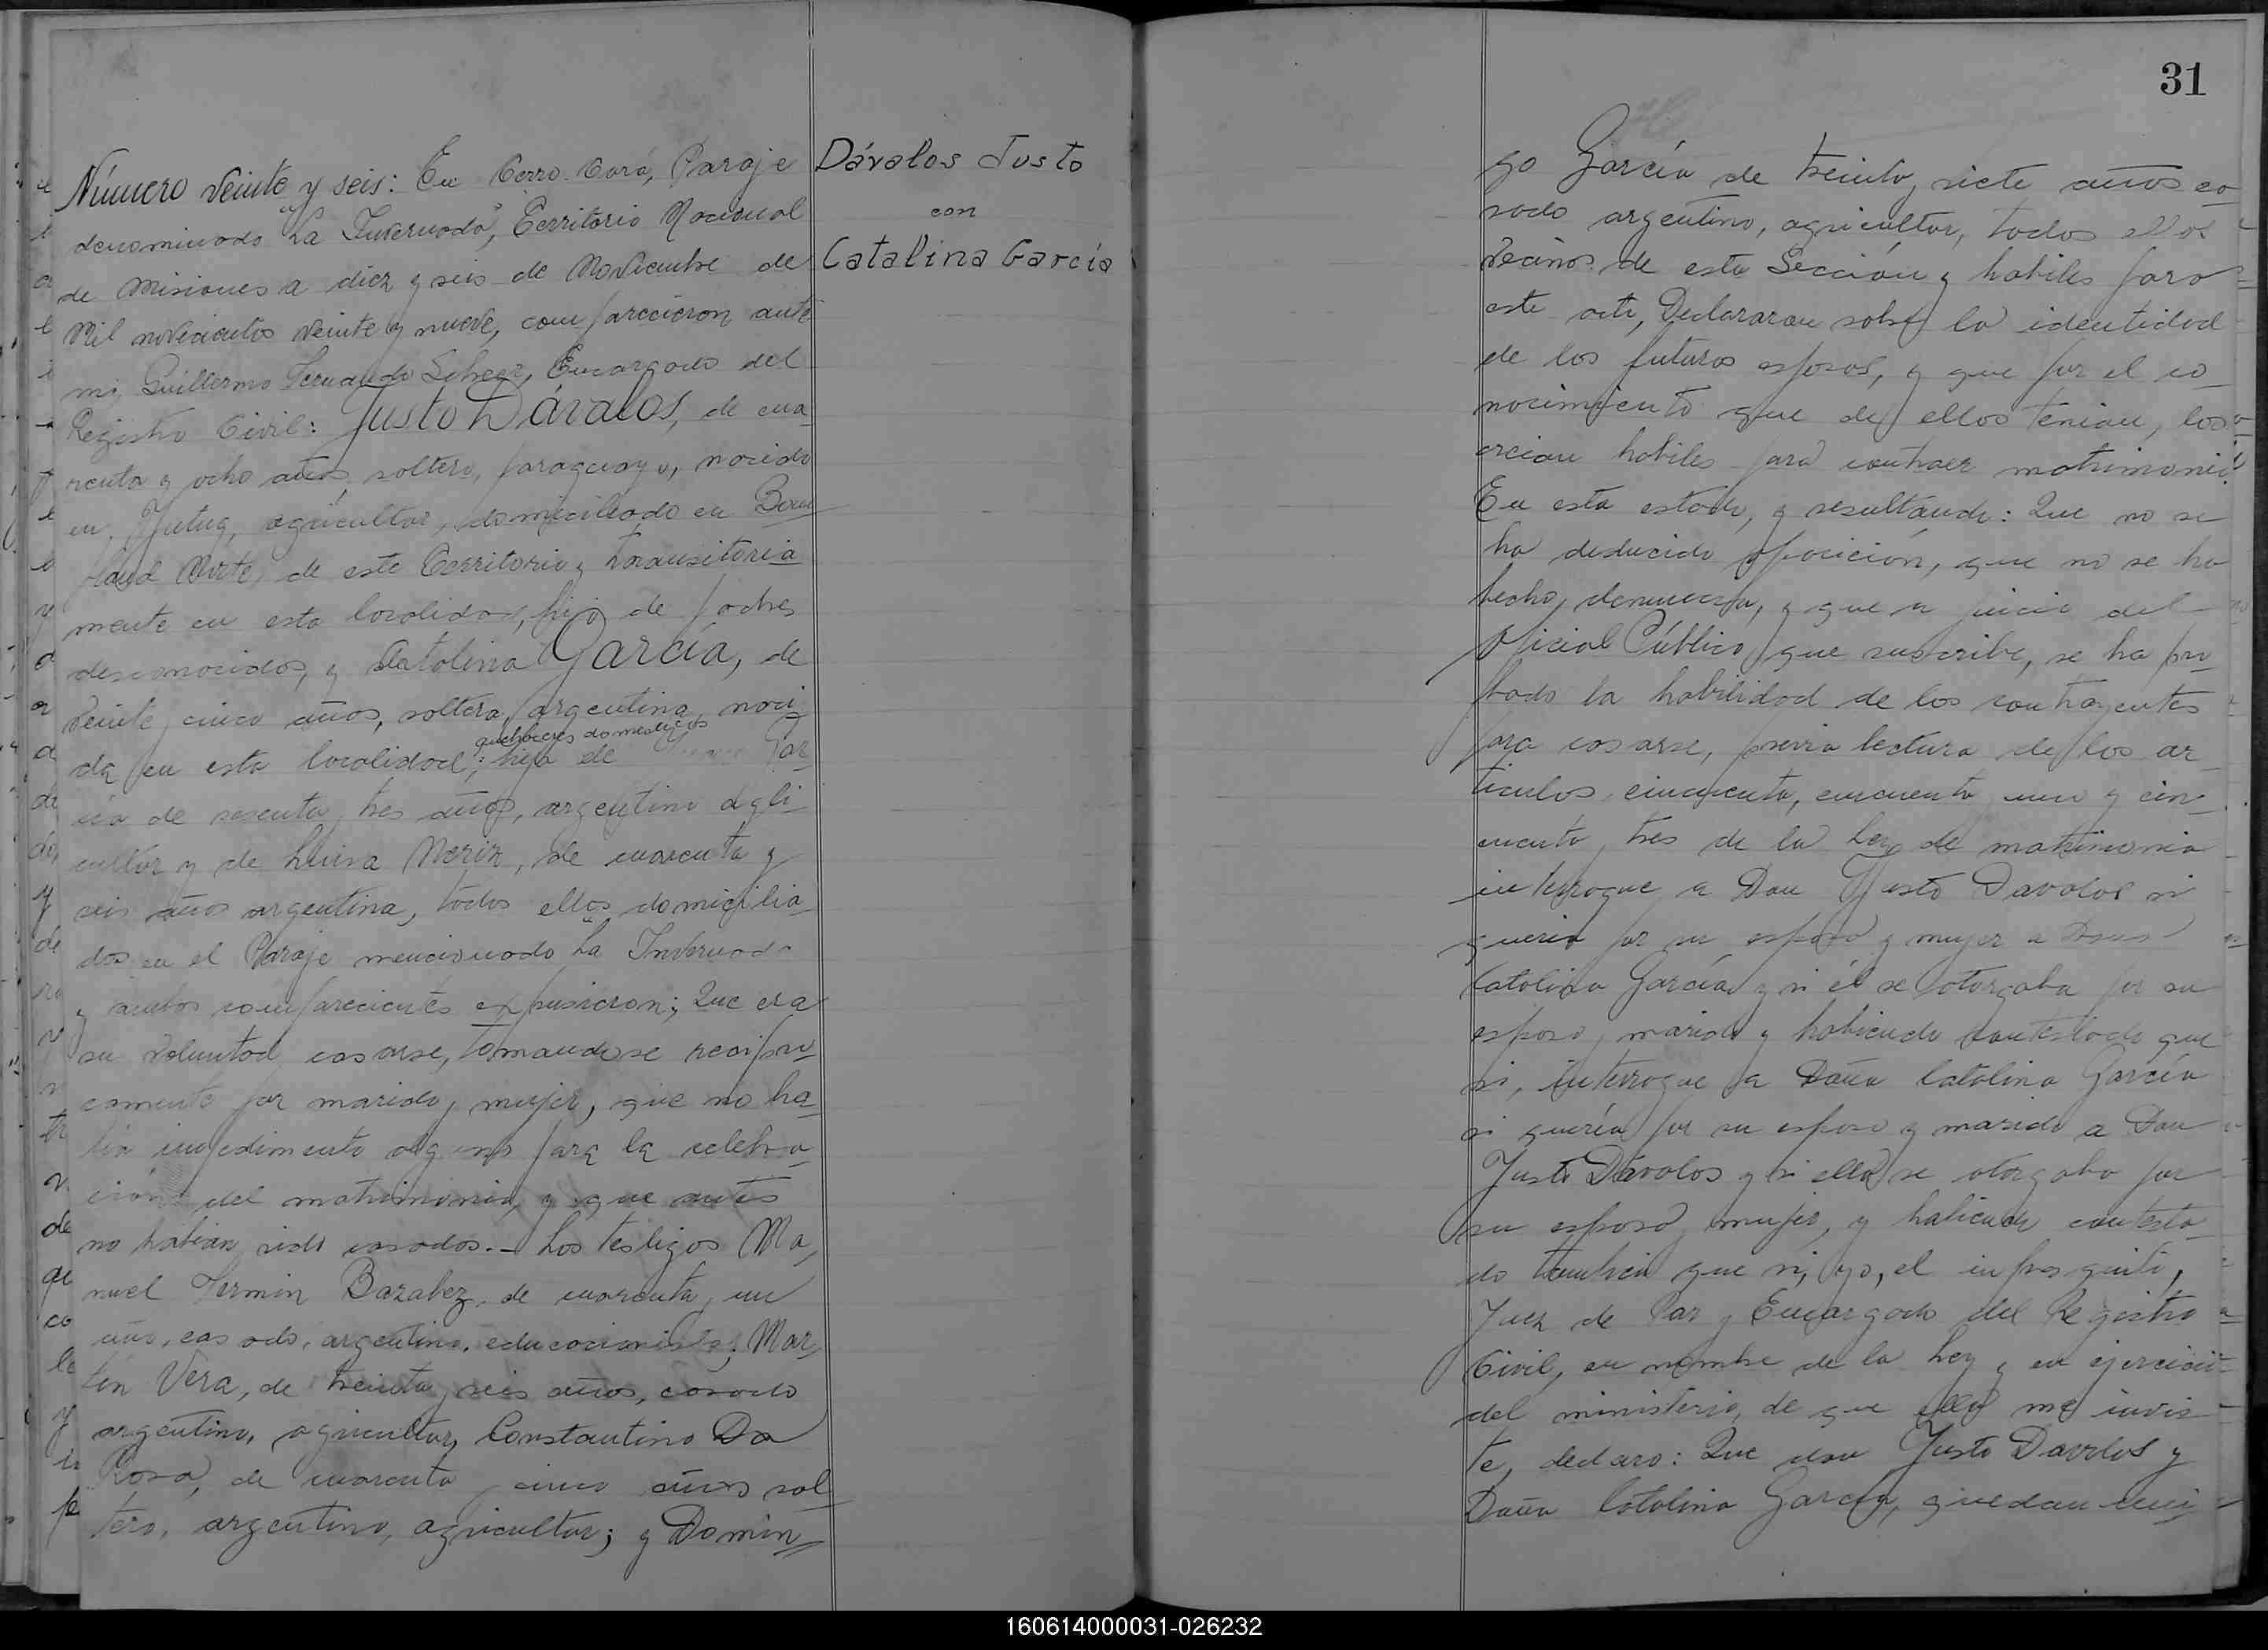 31
Número veinte y seis: En Cerro-Corá, Paraje
denominado "La Invernada", Territorio Nacional
de Misiones a diez y seis de Noviembre de
Mil novecientos veinte y nueve, comparecieron ante
mi, Guillermo Fernando Scherer, Encargado del
Registro Civil: Justo Dávalos, de cua-
renta y ocho años, soltero, paraguayo, nacido
en Yutuy, agricultor, domiciliado en Bom-
pland Norte, de este Territorio y transitoria-
mente en esta localidad, hijo de padres
desconocidos, y Catalina García, de
veinte y cinco años, soltera, argentina, naci-
quehaceres domesticos
da en esta localidad; hija de Gar-
cía de sesenta y tres años, argentino agri-
cultor y de Luisa Neriz, de cuarenta y
seis años argentina, todos ellos domicilia-
dos en el Paraje mencionado La Invernada
y ambos comparecientes expusieron; Que era
su voluntad casarse, tomandose recipro-
camente por marido y mujer, que no ha-
bía impedimento alguno para la celebra-
ción del matrimonio, y que antes
no habían sido casados.- Los testigos Ma-
nuel Fermin Bazabez, de cuarenta y un
año, casado, argentino, educacionista; Mar-
tín Vera, de treinta y seis años, casado
argentino, agricultor, Constantino Da
Rosa, de cuarenta y cinco años sol-
tero, argentino, agricultor; y Domin-
Dávalos Justo
con
Catalina García
go García de treinta y siete años ca-
sado argentino, agricultor, todos ellos
vecinos de esta Sección y habiles para
este acto, Declararon sobre la identidad
de los futuros esposos, y que por el co-
nocimiento que de ellos tenian, los
creian habiles para contraer matrimonio.
En este estado, y resultando: Que no se
ha deducido oposición, que no se ha
hecho denuncia, y que a juicio del
Oficial Público que suscribe, se ha pro-
bado la habilidad de los contrayentes
para casarse, previa lectura de los ar-
ticulos cincuenta, cincuenta y uno y cin-
cuenta y tres de la Ley de matrimonio
interrogue a Don Justo Davalos si
queria por su esposa y mujer a Doña
Catalina García y si él se otorgaba por su
esposo y marido y habiendo contestado que
si, interrogue a Doña Catalina García
si quería por su esposo y marido a Don
Justo Dávalos y si ella se otorgaba por
su esposa y mujer, y habiendo contesta-
do tambien que si, yo, el infrascrito,
Juez de Paz y Encargado del Registro
Civil, en nombre de la Ley y en ejercicio
del ministerio, de que ella me invis-
te, declaro: Que don Justo Davalos y
Doña Catalina García, quedan uni-
160614000031-026232